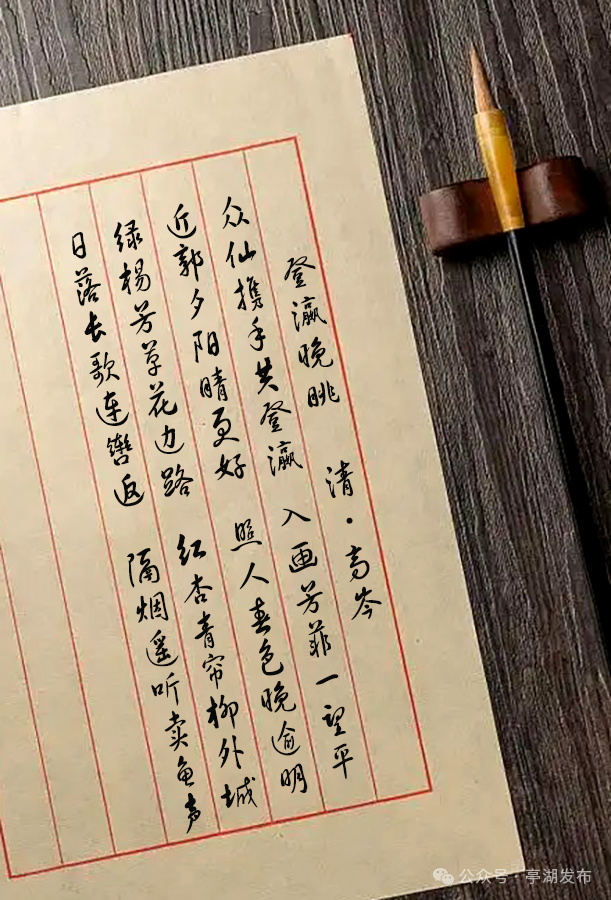 登瀛晚眺 清·高岑
众仙携手共登瀛 入画芳菲一望平
近郭夕阳晴更好 照人春色晚逾明
绿杨芳草花边路 红杏青帘柳外城
日落长歌连辔返 隔烟遥听卖鱼声
公众号·亭湖发布